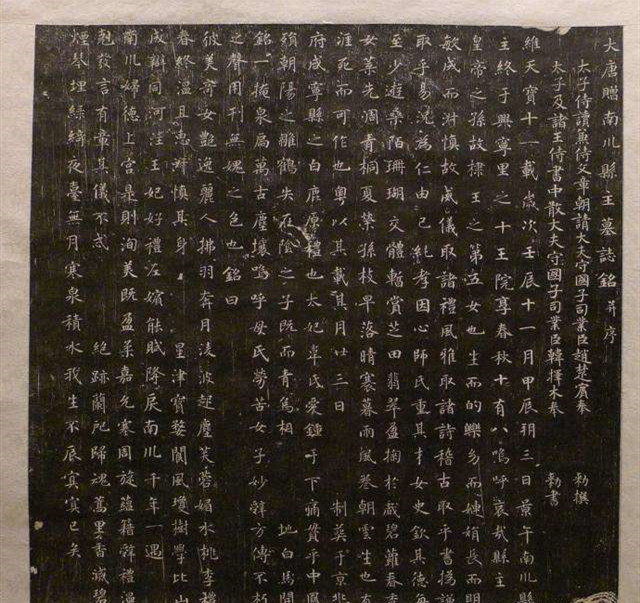 大唐贈南川縣主墓誌銘并序
太子侍讀兼侍文章朝請大夫守國子司業臣趙楚賓奉 勑撰
太子及諸王侍書中散大夫守國子司業臣韓擇木奉 勑書
維天寶十一載歲次壬辰十一月甲辰朔三日景午南川縣
主終于興寧里之十王院享春秋十有八嗚呼哀哉縣主
皇帝之孫故棣王之第五女也生而的皪多而婉娟長而明
敏成而淵慎故威儀取諸禮風雅取諸詩稽古取乎書撝謙
取乎易況為仁由己純孝因心師氏重其才女史欽其德每
至少遊桑陌珊瑚交體暫賞芝田翡翠盈掬於戲碧蘿春
女菜先凋青桐夏榮孫枝早落晴寒暮雨風卷朝雲生也有
涯死而可作也粵以其載其月廿三日 制葬于京兆
府咸寧縣之白鹿原禮也大妃韋氏愛鍾于下痛貫乎中鳳
殞朝陽之雛鶴失在陰之子既而青烏相 地白馬開
銘一掩泉扃萬古塵壤嗚呼母氏勞苦女子妙韓方傳不朽
之聲用刊無媿之色也銘曰
彼美奇女艷逸麗人拂羽奔月淩波起塵芙蓉媚水桃李
春終溫且惠辯慎其身 星津寶婺閬風瓊樹學比山
成辯同河注王妃好禮左嬪能賦降戾南川千年一遇
南川婦德上宮是則洵美既盈柔嘉允塞周旋蘊藉辭禮溫
剋發言有章其儀不忒 絕跡蘭阤歸魂蒿里香滅碧
煙琴埋綠綺夜臺無月寒泉積水我生不辰寘寘已矣